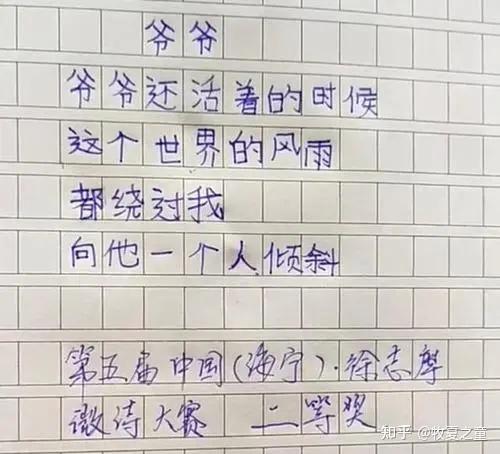 爷爷
爷爷还活着的时候
这个世界的风雨
都绕过我
向他一个人倾斜
第五届中国(海宁)·徐志摩
微诗大赛 二等奖
知乎 @牧夏之童